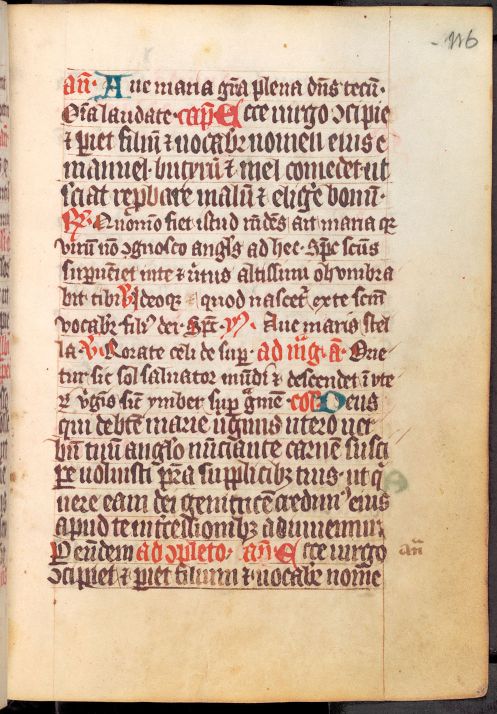 116
añ. Aue maria grã plena dñs tecũ.
Oĩa laudate. capl̃ Ecce uirgo ɔcipie
⁊ piet filiũ ⁊ uocabr nomen eius e
manuel. butyrũ ⁊ mel comedet ut
sciat repbare malũ ⁊ eligẽ bonũ.
Quomõ fiet istud ait maria
uirum nõ ɔgnosco angls ad hec. Spc scũs
supueniet in te ⁊ altissimi obumbra
bit tibi V Ideoqꝫ ⁊ quod nascet ex te scm
vocabr fili dei. Spc. Aue maris stel
la. V. Rorate celi de sup. ad a. Orie
tur sic sol saluator mũdi ⁊ descendet ĩ ute
rũ ũgis sic ymber sup gmẽ. col̃ Deus
qui de bte marie uginis utero uer
bũ tuũ anglo nũciante carnẽ susci
pe uoluisti pra supplicibꝫ tuis. ut q
uere eam dei genitricẽ credim eius
apud te intcessionibꝫ adiuuemur
P eundem ad ɔpleto. añ. Ecce uirgo
ɔcipiet ⁊ piet filium ⁊ uocabr nomẽ
añ